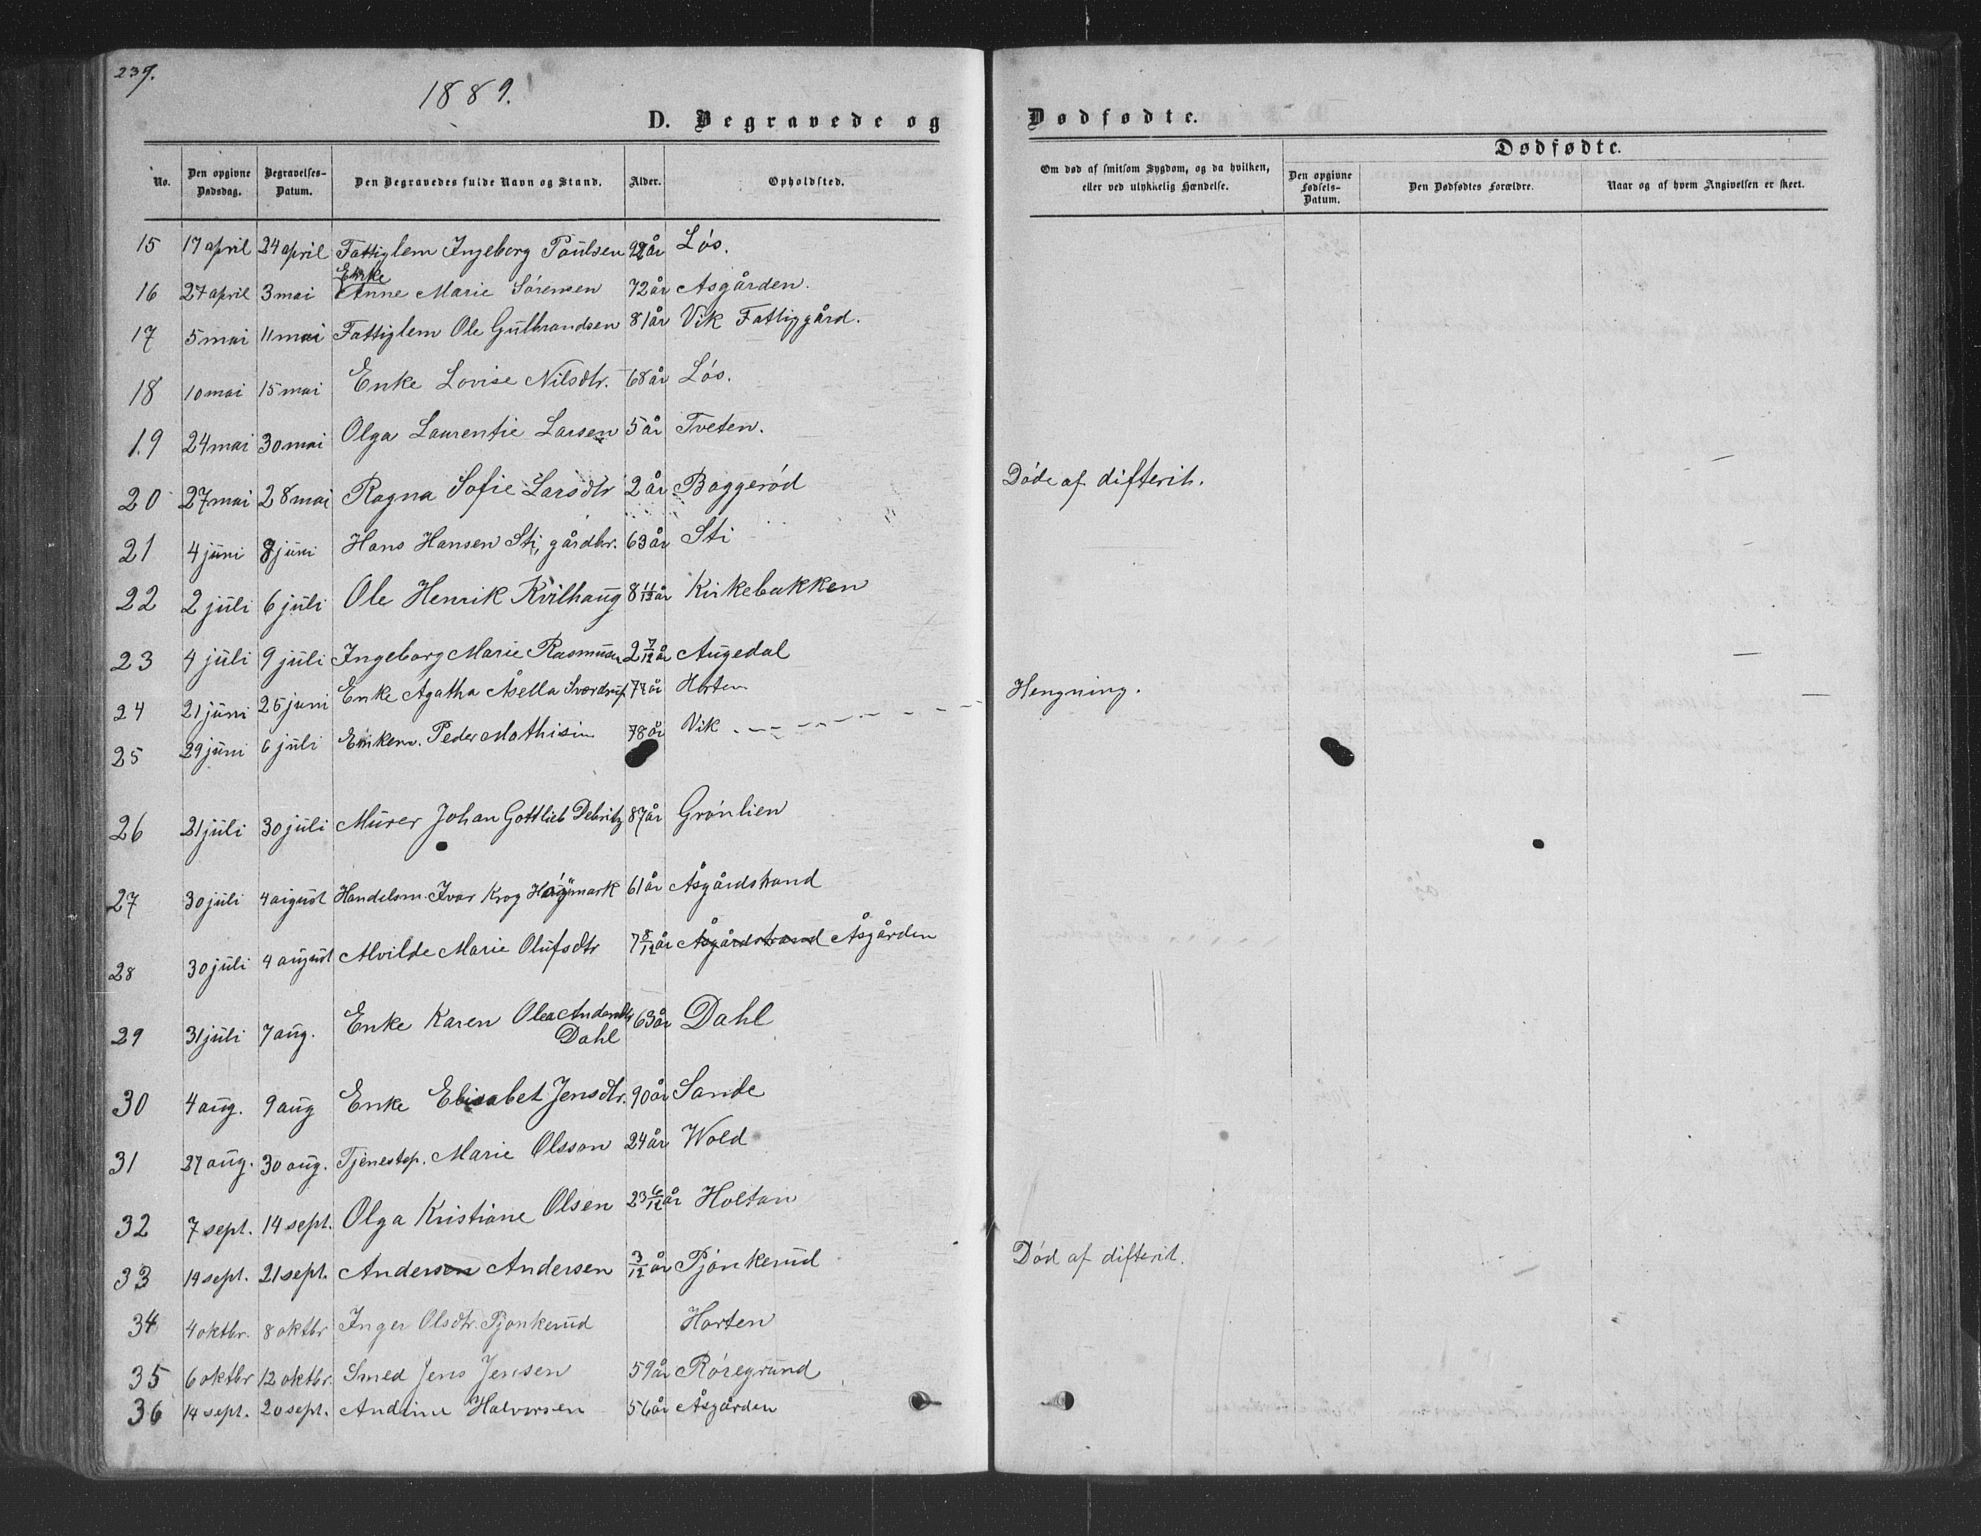 239.
1889.
D. Begravede og
Dødfødte.
No.
Den opgivne Dødsdag.
Begravelses-Datum.
Den Begravedes fulde Navn og Stand.
Alder.
Opholdsted.
Om død af smitsom Sygdom, og da hvilken, eller ved ulykkelig Hændelse.
Dødfødte.
Den opgivne Fødsels-Datum.
Den Dødfødtes Forældre.
Naar og af hvem Angivelsen er skeet.
15 17 april 24 april Fattiglem Ingeborg Paulsen år Løs.
16 27 april 3 mai Enke Anne Marie Sørensen 72 år Asgården.
17 5 mai 11 mai Fattiglem Ole Gulbrandsen 81 år Vik Fattiggård.
18 10 mai 15 mai Enke Lovise Nilsdtr. 68 år Løs.
19 24 mai 30 mai Olga Laurentie Larsen 5 år Tveten.
20 27 mai 28 mai Ragna Sofie Larsdtr 2 år Baggerød Døde af difterit.
21 4 juni 8 juni Hans Hansen Sti, gårdbr. 63 år Sti
22 2 juli 6 juli Ole Henrik Kvilhaug 8 11/12 år Kirkebakken
23 4 juli 9 juli Ingeborg Marie Rasmusen 2 7/12 år Augedal
24 21 juni 25 juni Enke Agatha Åsella Sverdrup 77 år Horten Hengning.
25 29 juni 6 juli Enkem. Peder Mathisen 78 år Vik
26 21 juli 30 juli Murer Johan Gottlieb Debritz 87 år Grønlien
27 30 juli 4 august Handelsm. Ivar Krog Høymark 61 år Åsgårdstrand
28 30 juli 4 august Alvilde Marie Olufsdtr 7 8/12 år Åsgårdstrand Åsgården
29 31 juli 7 aug. Enke Karen Olea Andersdtr Dahl 63 år Dahl
30 4 aug. 9 aug Enke Elisabet Jensdtr. 90 år Sande
31 27 aug. 30 aug. Tjenestep. Marie Olsson 24 år Wold
32 7 sept. 14 sept. Olga Kristiane Olsen 23 6/12 år Holtan
33 19 sept. 21 sept. Andersen Andersen 3/12 år Pjønkerud Død af difterit.
34 4 oktbr. 8 oktbr Inger Olsdtr. Pjønkerud Horten
35 6 oktbr 12 oktbr. Smed Jens Jensen 59 år Røregrund
36 14 sept. 20 sept. Andrine Halvorsen 56 år Åsgården